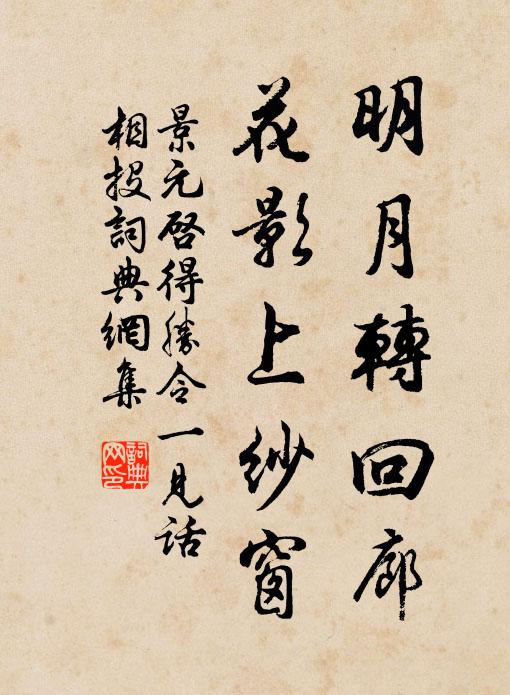 明月轉回廊
花影上紗窗
景元啓得勝令一見話
相投詞典網集
詞典網印